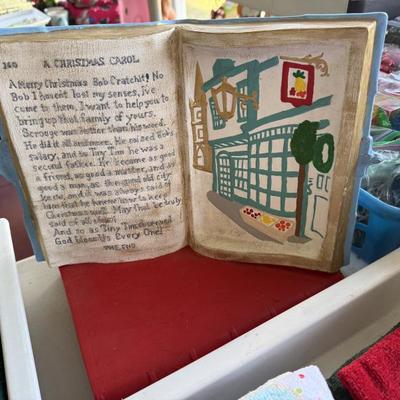 160 A CHRISTMAS CAROL
A Merry Christmas Bob Cratchit! No
Bob I havent lost my senses, ive
come to them, I want to help you to
bring up that family of yours.
Scrooge was better than his word.
He did it all and more. He raised Bob's
salary, and to Tiny Tim he was a
second father. He became as good
a friend, as good a master, and as
good a man, as the good old city
knew, and it was always said of
him that he knew how to keep
Christmas well. May that be truly
said of all of us!
And so as Tiny Tim observed
God bless Us Every One!
THE END